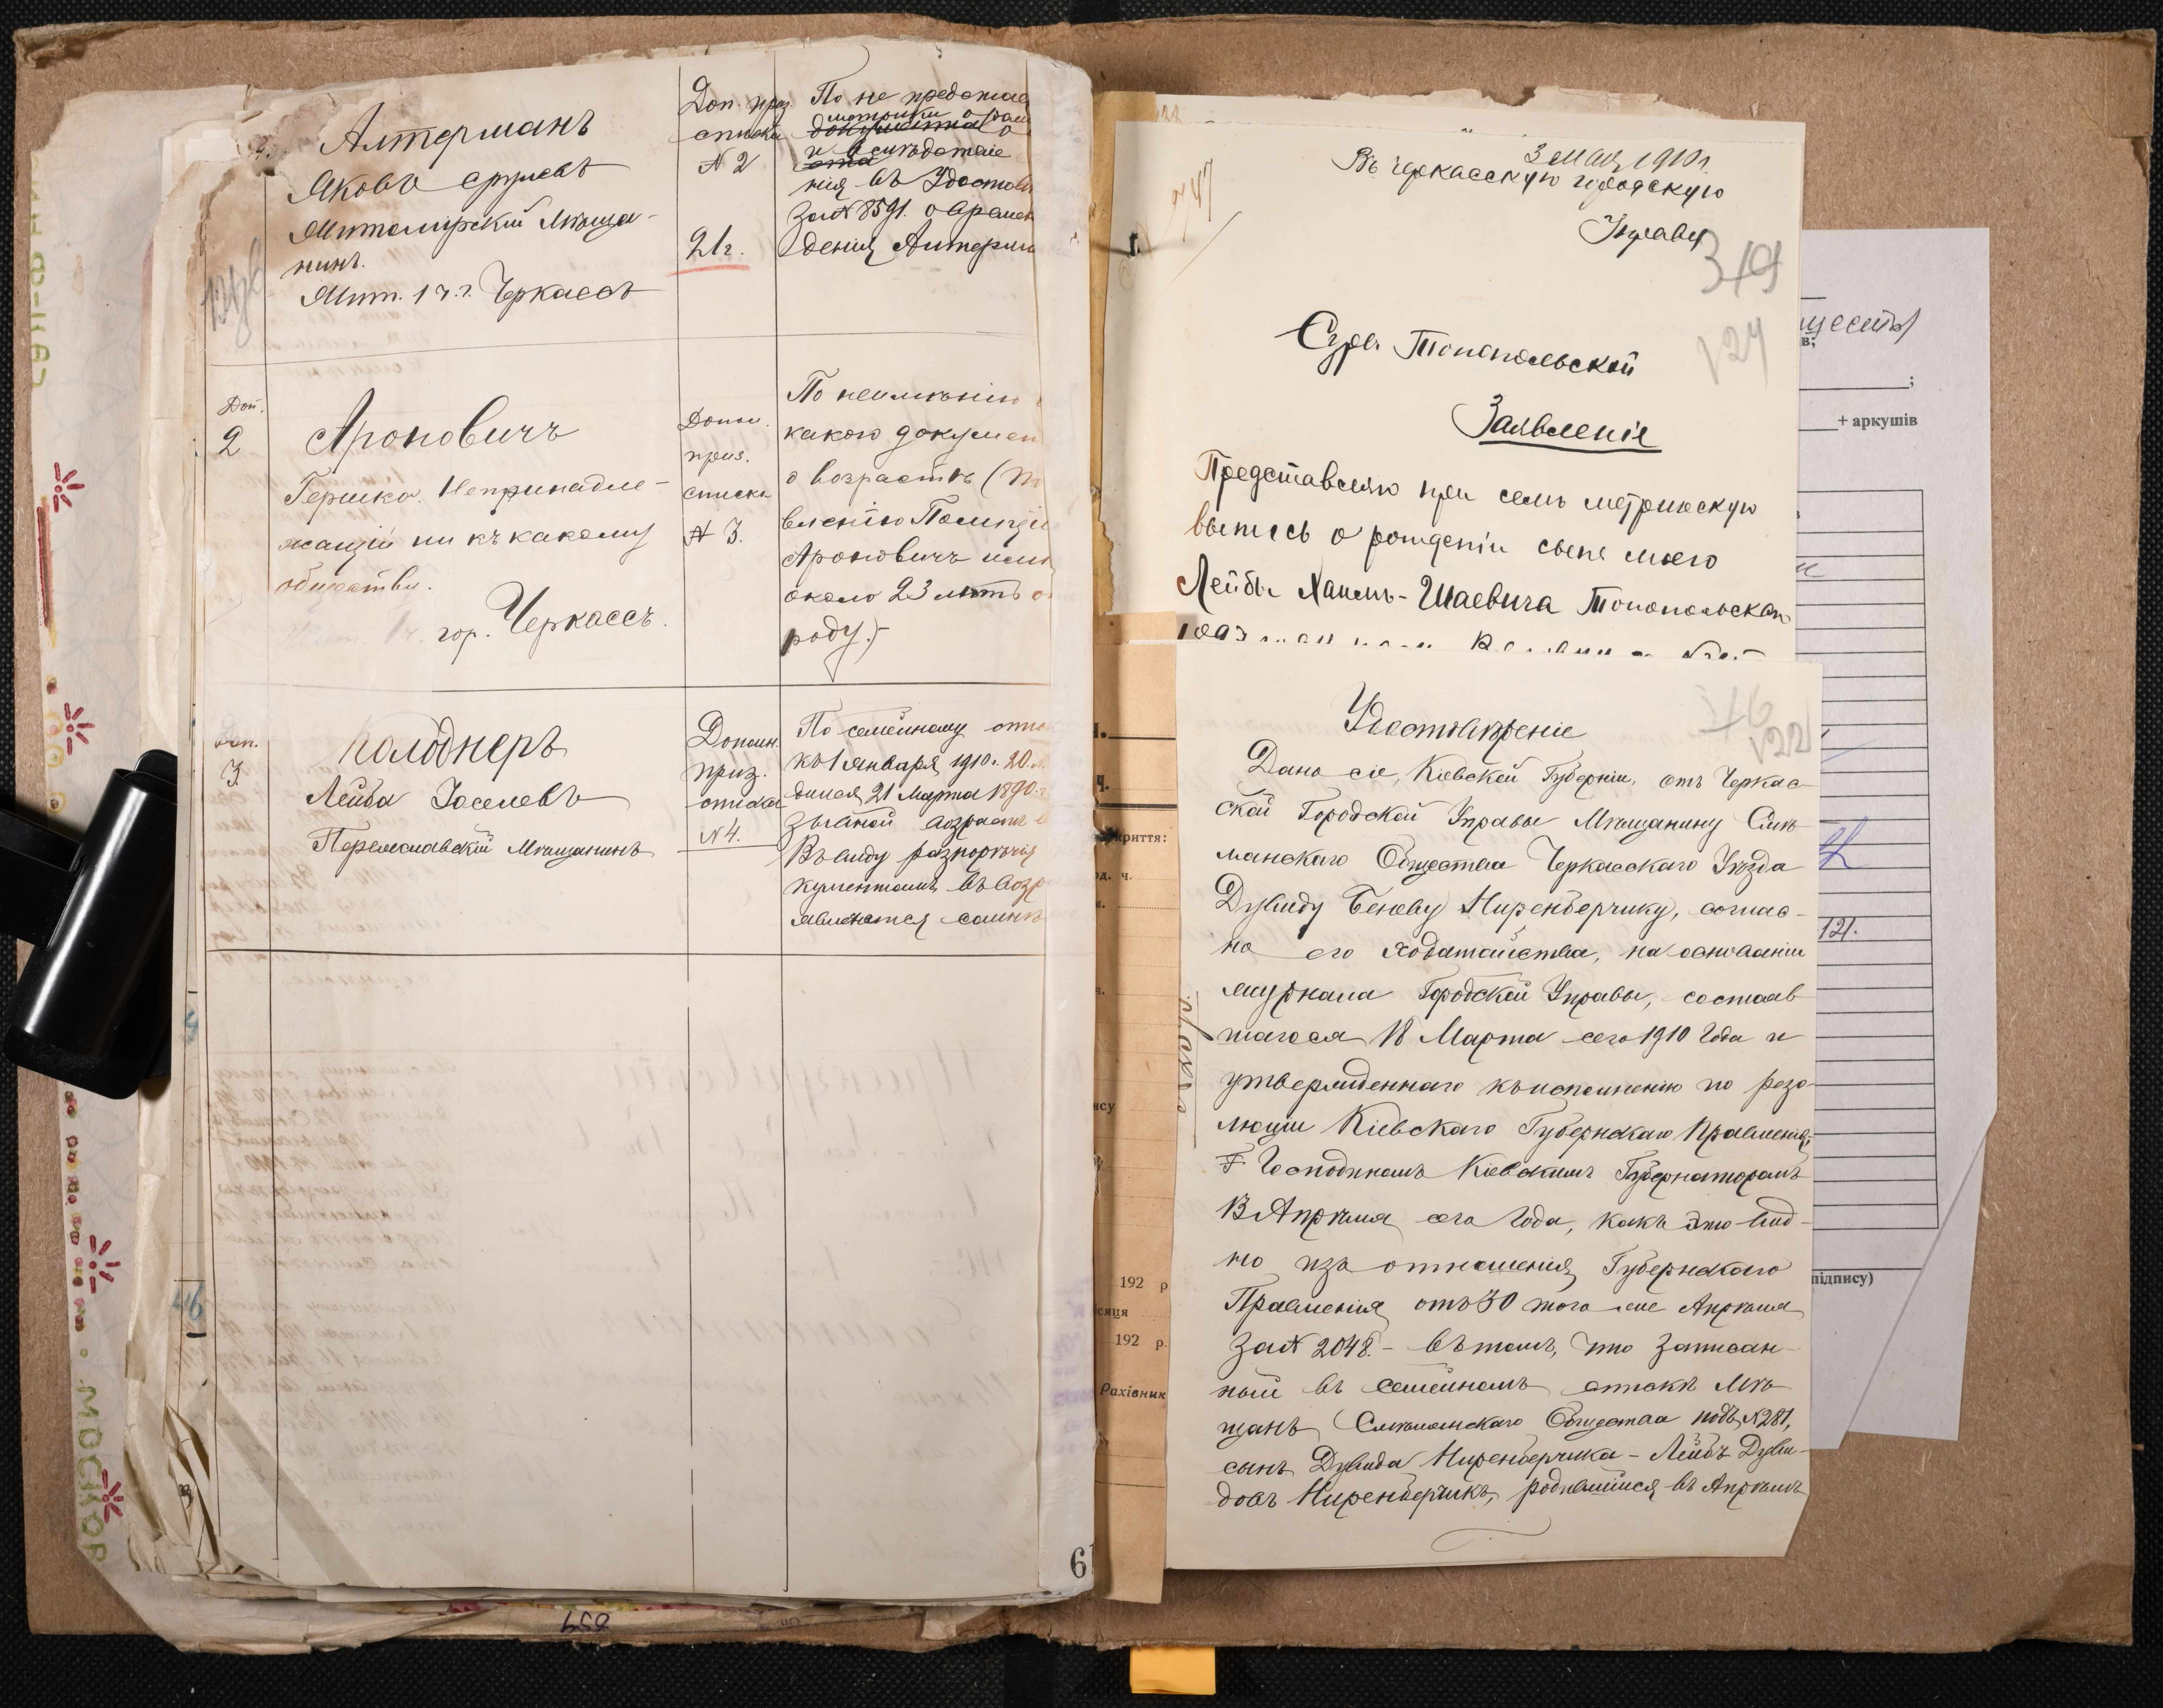 Алтерманъ
Яковъ Сруловъ
Житомірскій Мѣща-
нинъ.
Жит. 1 ч. г. Черкассъ
Доп. приз.
списка
№ 2
21 г.
По не представ
метрики о
документа о
и вслѣдствіе
нія въ Удостов
за № 8591. о времен
денія Алтерма
Доп.
2
Ароновичъ
Гершко. Непринадле-
жащій ни къ какому
обществу.
гор. Черкассъ.
Допол.
приз.
списка
№ 3.
По неимѣнію
какого докумен
о возрастѣ (
вленію Полиціи
Ароновичъ
около 23 лѣтъ о
роду).-
Доп.
3
Колоднеръ
Лейба Іоселевъ
Переяславскій Мѣщанинъ
Дополн.
приз.
списка
№ 4.
По семейному спис
къ 1 Января 1910 г. 20
дился 21 Марта 1890 г.
зывной возрастъ
Въ виду разнорѣчія
кументомъ въ возр
является сомнѣ
61
659
МОСКОР
3 Мая 1910 г.
Въ Черкасскую городскую
Управу
319
124
№ 47
Суры Топопольской
Заявленіе
Представляю при семъ метрическую
выпись о рожденіи сына моего
Лейбы Хаимъ-Шаевича Топопольскаго
Удостовѣреніе
122
Дано сіе, Кіевской Губерніи, отъ Черкас-
ской Городской Управы Мѣщанину Смѣ-
лянскаго Общества Черкасскаго Уѣзда
Дувиду Беневу Ниренберчику, соглас-
но его ходатайства, на основаніи
журнала Городской Управы, состояв
шагося 18 Марта сего 1910 Года и
утвержденнаго къ исполненію по резо-
люціи Кіевскаго Губернскаго Правленія,
Господиномъ Кіевскимъ Губернаторомъ
13 Апрѣля сего Года, какъ это вид-
но изъ отношенія Губернскаго
Правленія отъ 30 того же Апрѣля
за № 2048. - въ томъ, что записан-
ный въ семейномъ спискѣ Мѣ-
щанъ Смѣлянскаго Общества подъ № 281,
сынъ Дувида Ниренберчика - Лейбъ Дуви-
довъ Ниренберчикъ, родившійся въ Апрѣлѣ
+ аркушів
121.
192 р
192 р.
Рахівник
підпису)